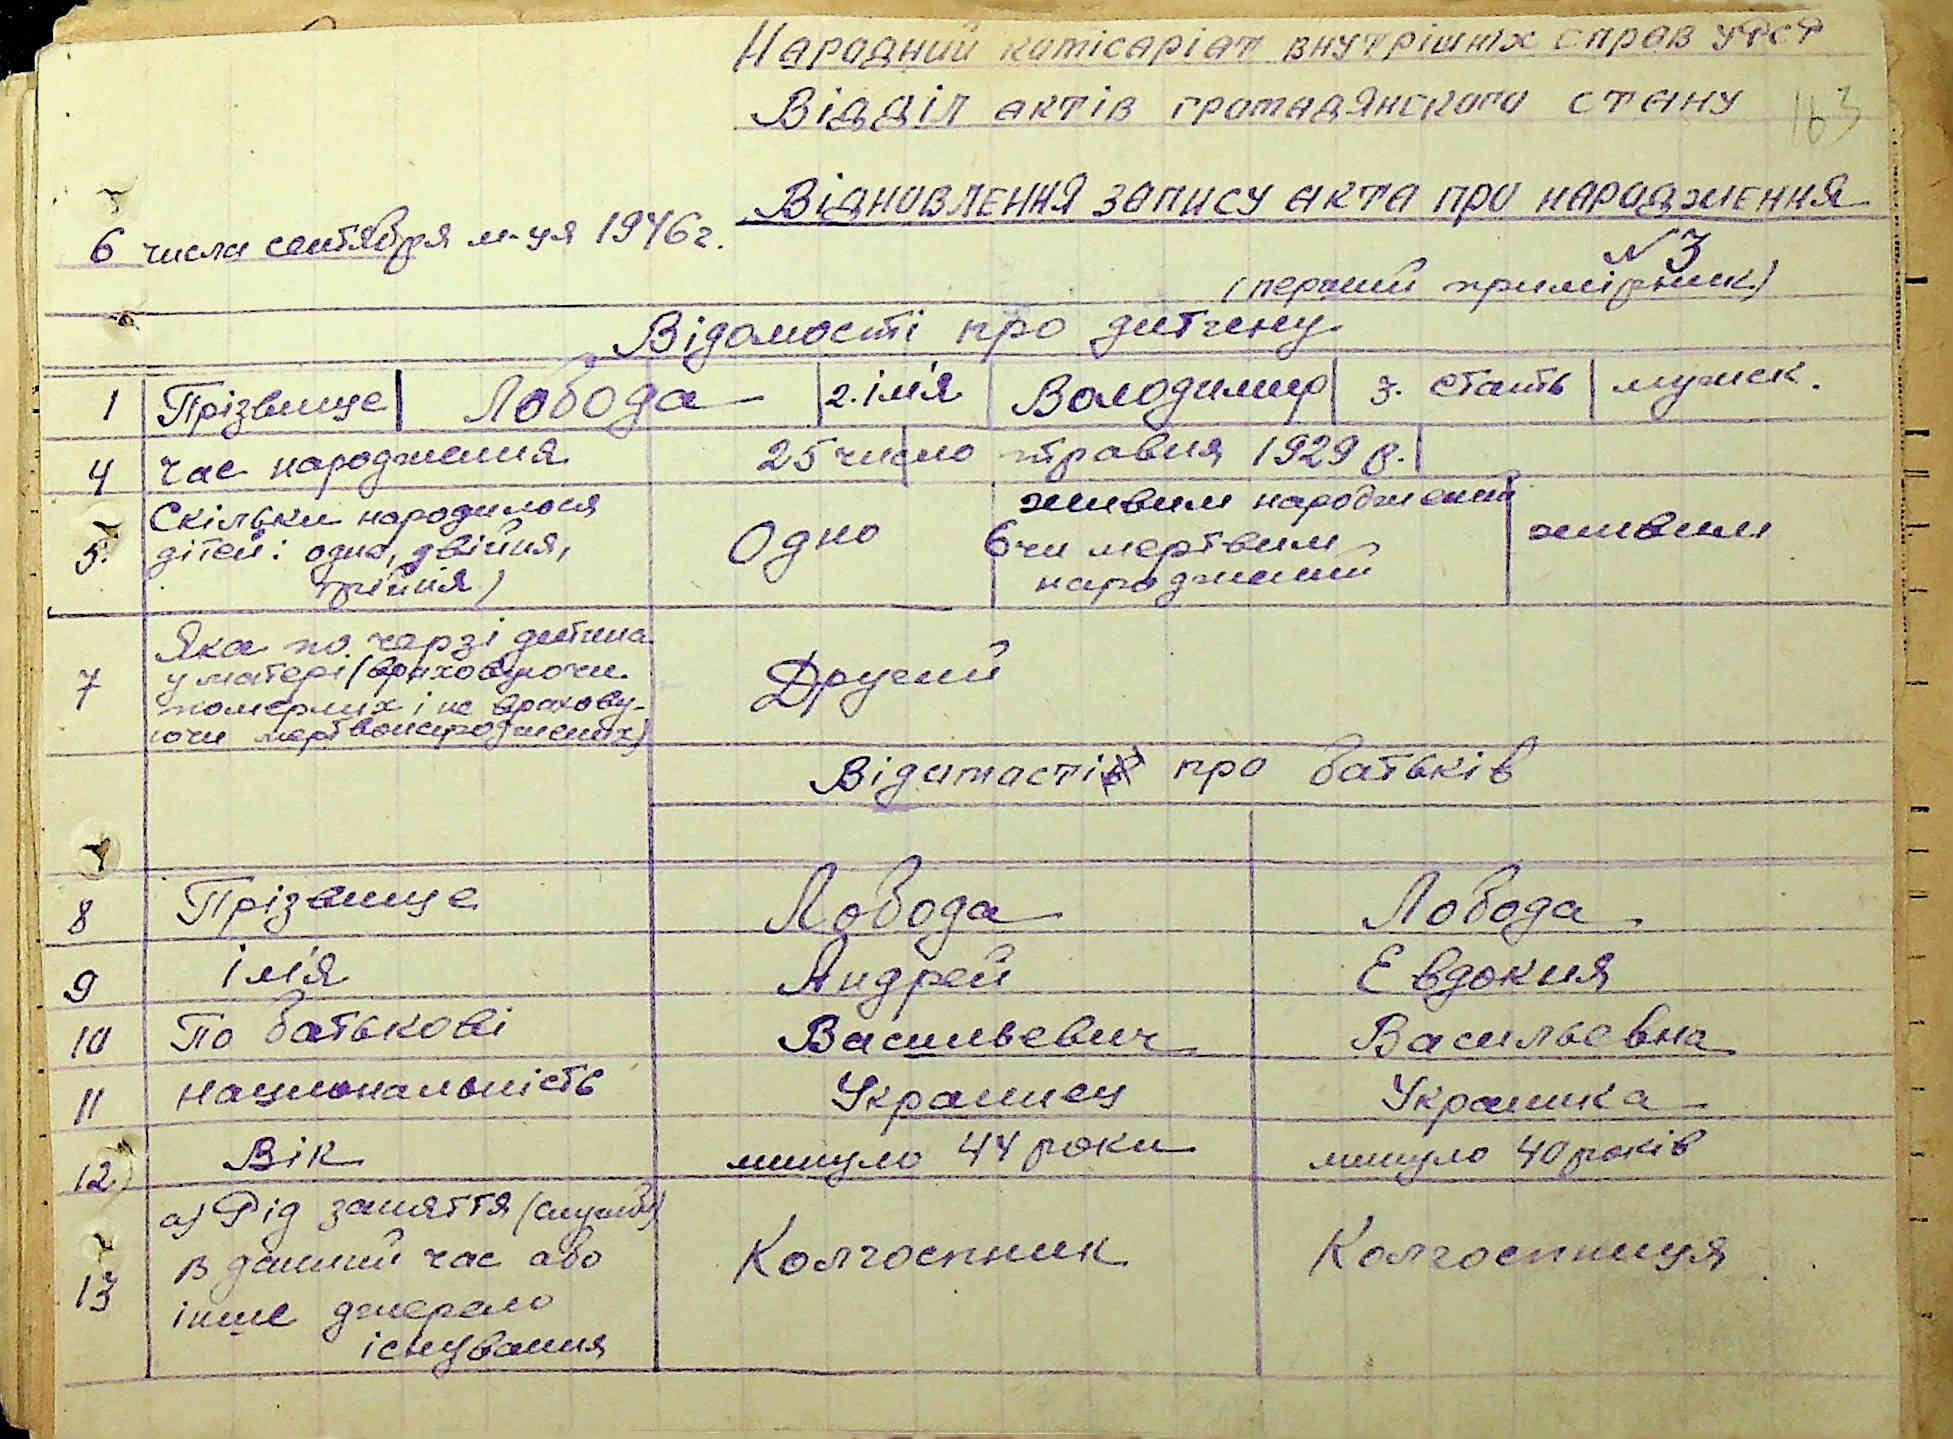 Народний комісаріат внутрішніх справ УРСР
Відділ актів громадянского стану
163
Відновлення запису акта про народження
6 числа сентября м-ця 1946 г.
N 3
(перший примірник)
Відомості про дитину
1 Прізвище Лобода 2. ім'я Володимир 3. стать мужск.
4 час народження 25 число травня 1929 р.
5. Скільки народилося дітей: одно, двійня, трійня) Одно 6 живим народжений чи мертвим народжений живим
7 Яка по черзі дитина
у матері (враховуючи
померлих і не врахову-
ючи мертвонароджених) Другий
Відомості про батьків
8 Прізвище Лобода Лобода
9 ім'я Андрей Евдокия
10 По батькові Васильевич Васильевна
11 национальність Украинец Украинка
12 Вік минуло 44 роки минуло 40 років
13 а) Рід заняття (служби)
в даний час або Колгоспник Колгоспниця
інше джерело
існування